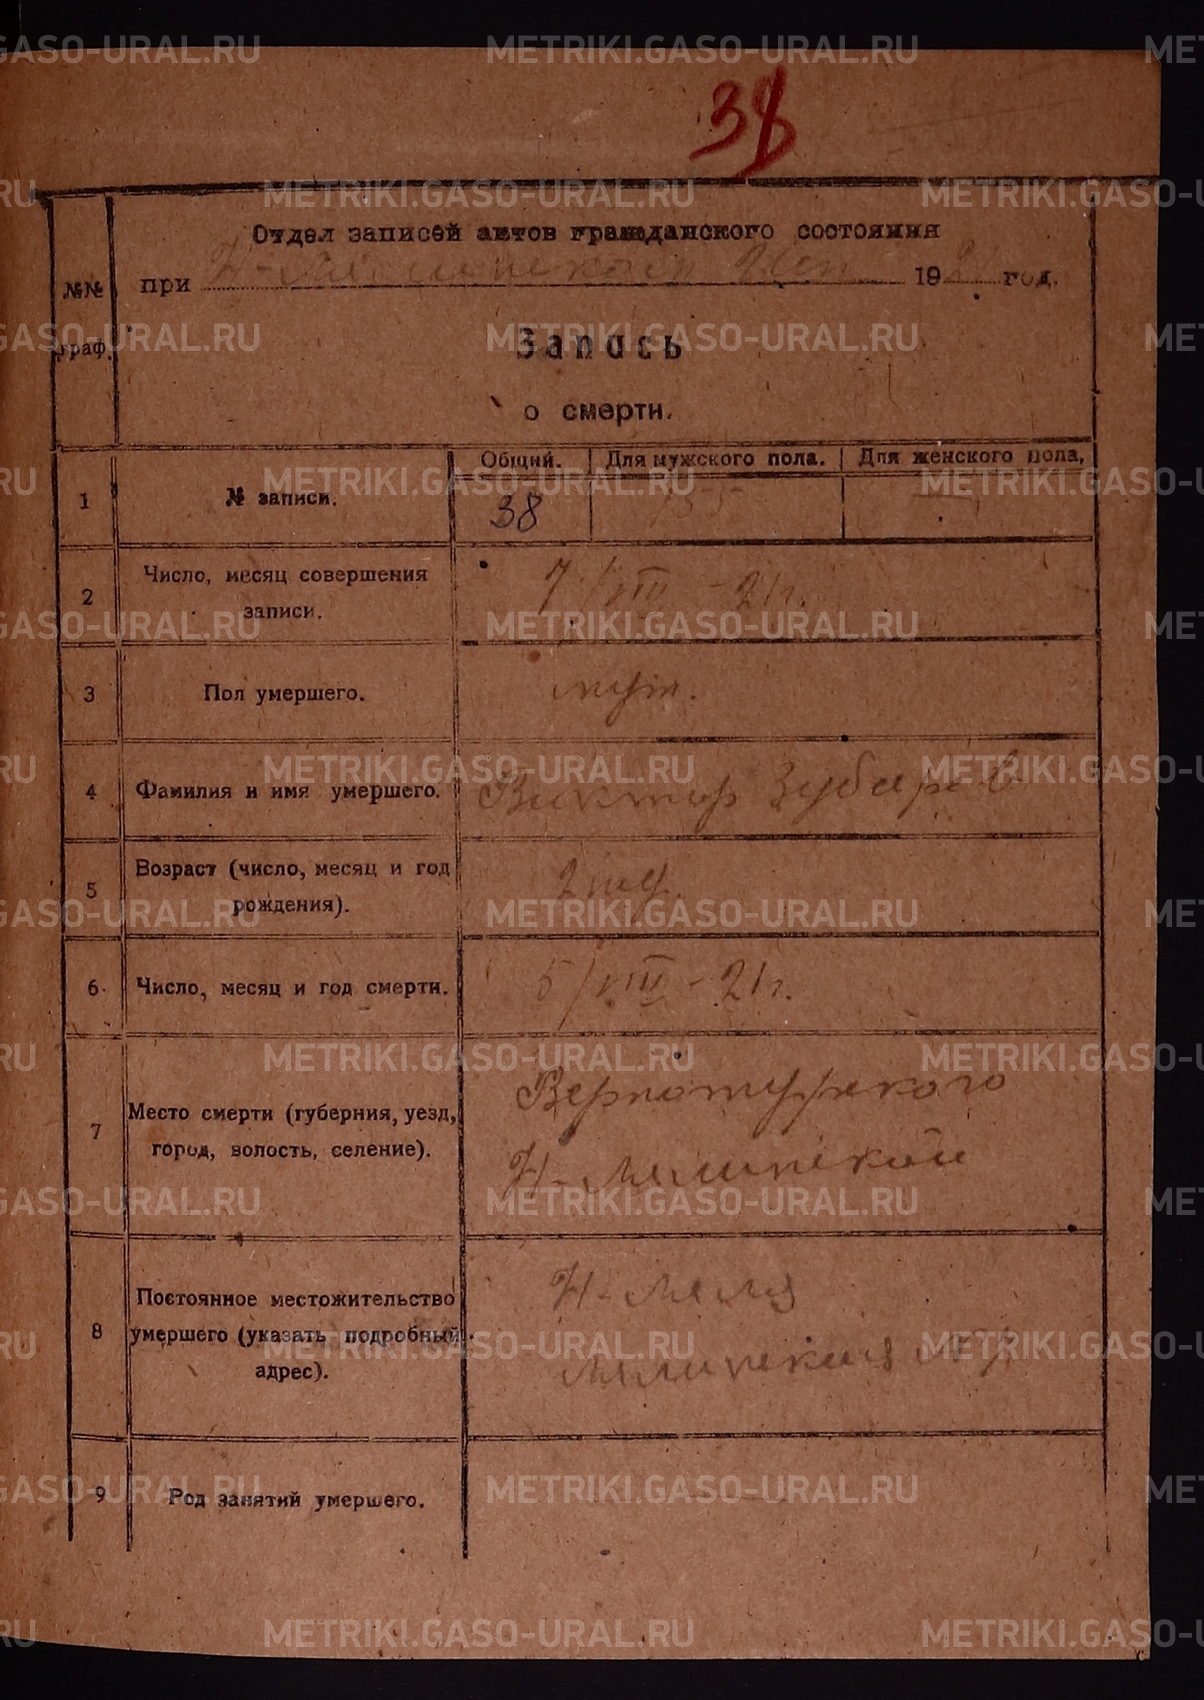 38
Отдел записей актов гражданского состояния
при Н-Лялинском 192 год.
№№ граф.
Запись
о смерти.
Общий. Для мужского пола. Для женского пола,
1 № записи. 38
2 Число, месяц совершения записи. 7/VIII - 21 г.
3 Пол умершего. муж.
4 Фамилия и имя умершего. Виктор Зубарев
5 Возраст (число, месяц и год рождения). 2
6 Число, месяц и год смерти. 5/VIII - 21 г.
7 Место смерти (губерния, уезд, город, волость, селение). Верхотурского
Н-Лялинской
8 Постоянное местожительство умершего (указать подробный адрес). Н-Ляля
Лялинская №
9 Род занятий умершего.
METRIKI.GASO-URAL.RU